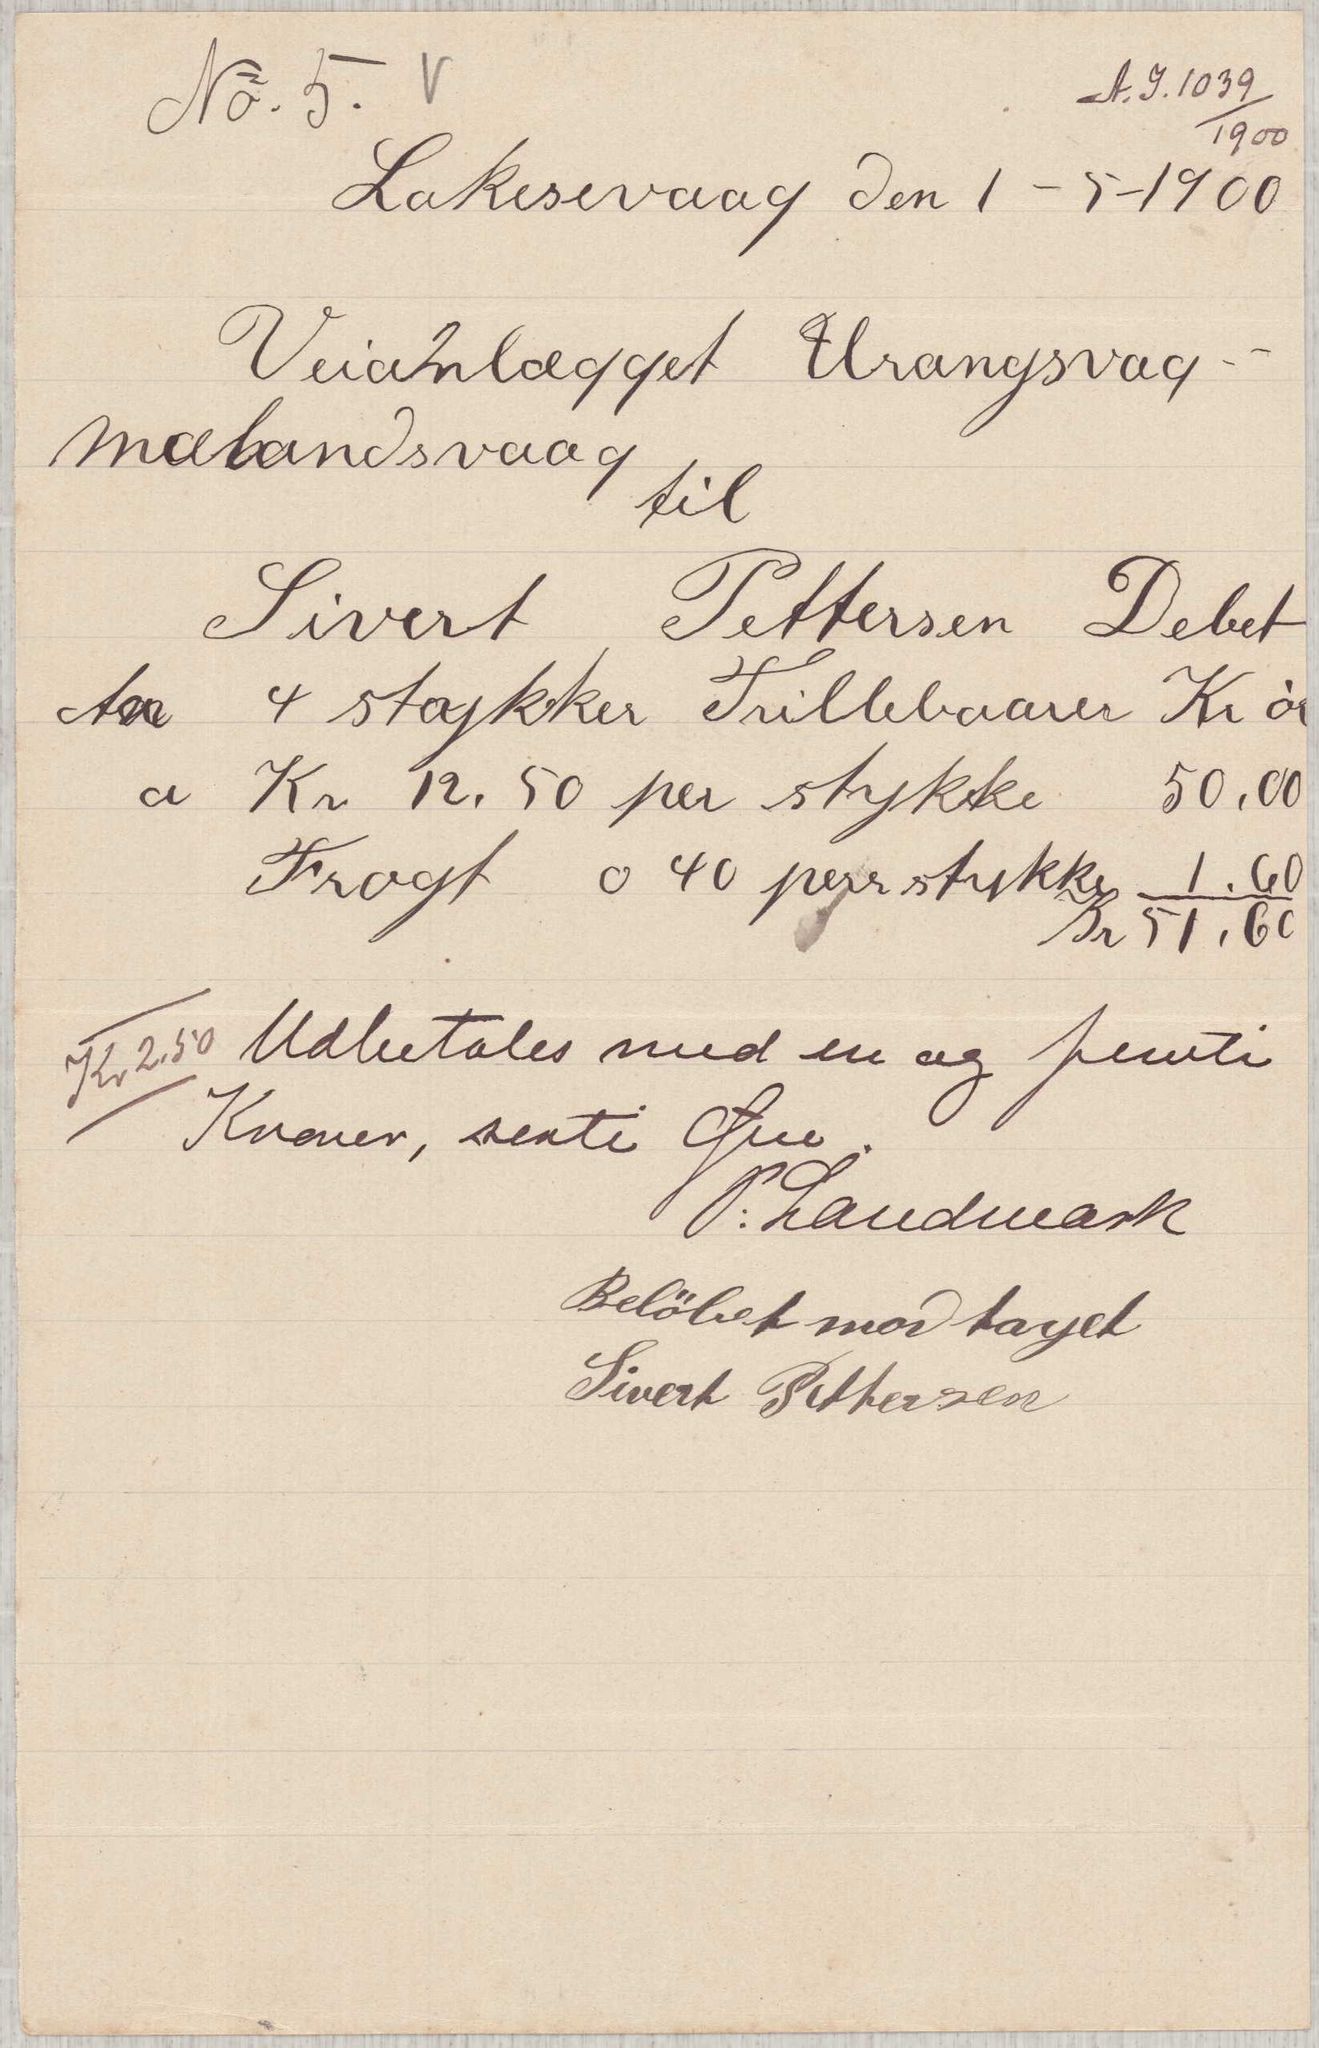 No. 5. V
A. J. 1039/1900
Laksevaag den 1-5-1900
Veianlægget Urangsvag-
mælandsvaag
til
Sivert Pettersen Debet
An 4 støjkker Trillebaarer Kr ör
a Kr 12.50 per stykke 50,00
Fragt a 40 perr stykke 1.60
Kr 51,60
Kr 2.50 Udbetales med en og femti
Kroner, sexti Øre.
P. Landmark
Belöbet modtaget
Sivert Pettersen